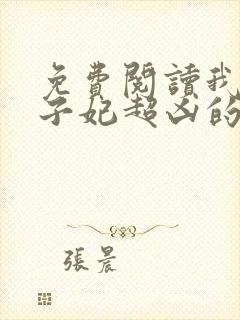 免費閱讀我
子妃超凶的
張晨